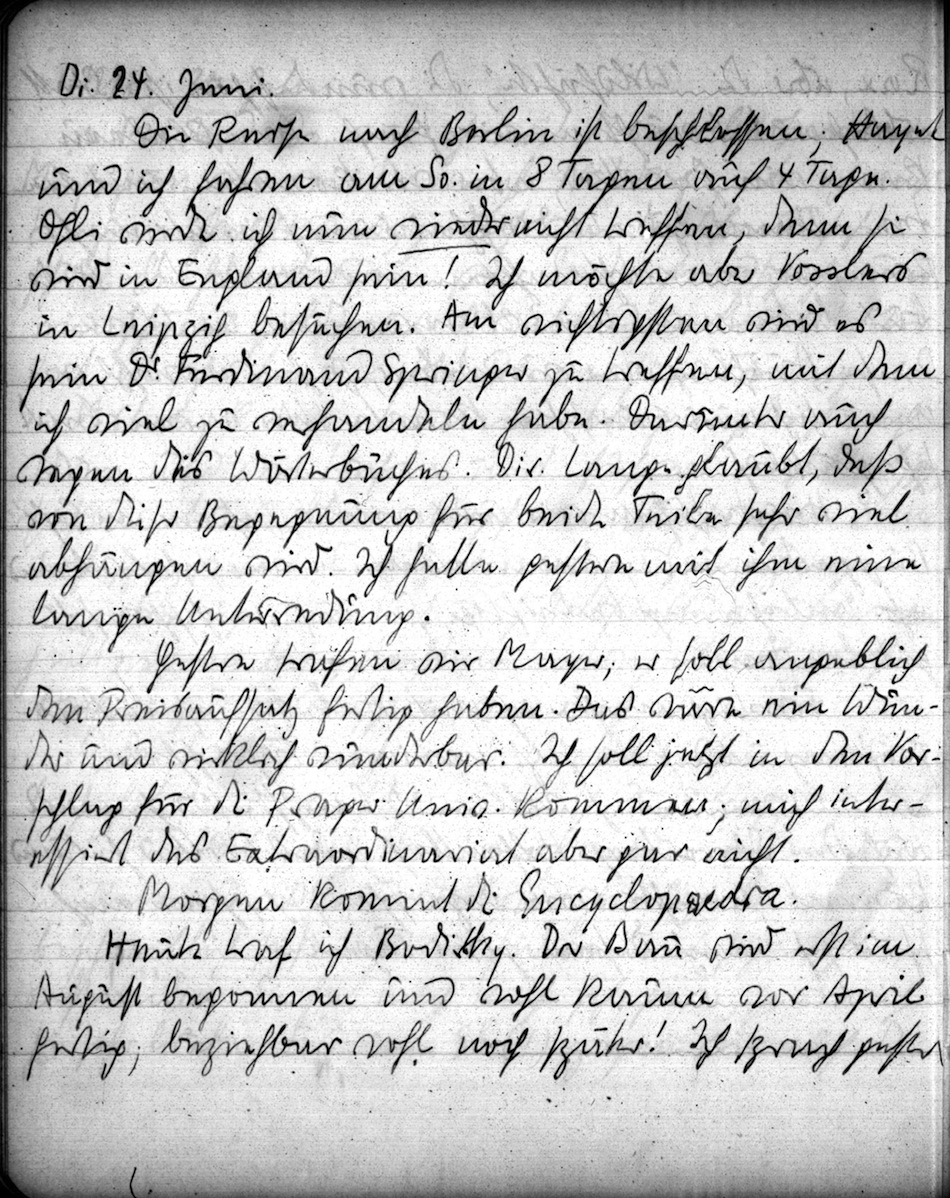 Di. 24. Juni.
Die Reise nach Berlin ist beschlossen; Hayek
und ich fahren am So. in 8 Tagen auf 4 Tage.
Ohli werde ich nun wieder nicht treffen, denn sie
wird in England sein! Ich möchte aber Vosslers
in Leipzig besuchen. Am wichtigsten wird es
sein Dr. Ferdinand Springer zu treffen, mit dem
ich viel zu verhandeln habe. Darunter auch
wegen des Wörterbuches. Dir. Lange glaubt, daß
von dieser Begegnung für beide Teile sehr viel
abhängen wird. Ich hatte gestern mit ihm eine
lange Unterredung.
Gestern trafen wir Mayer; er soll angeblich
den Preisaufsatz fertig haben. Das wäre ein Wun-
der und wirklich wunderbar. Ich soll jetzt in den Vor-
schlag für die Prager Univ. kommen; mich inter-
essiert das Extraordinariat aber gar nicht.
Morgen kommt die Encyclopaedia.
Heute traf ich Bodisky. Der Bau wird erst im
August begonnen und wohl kaum vor April
fertig; beziehbar wohl noch später! Ich sprach gestern